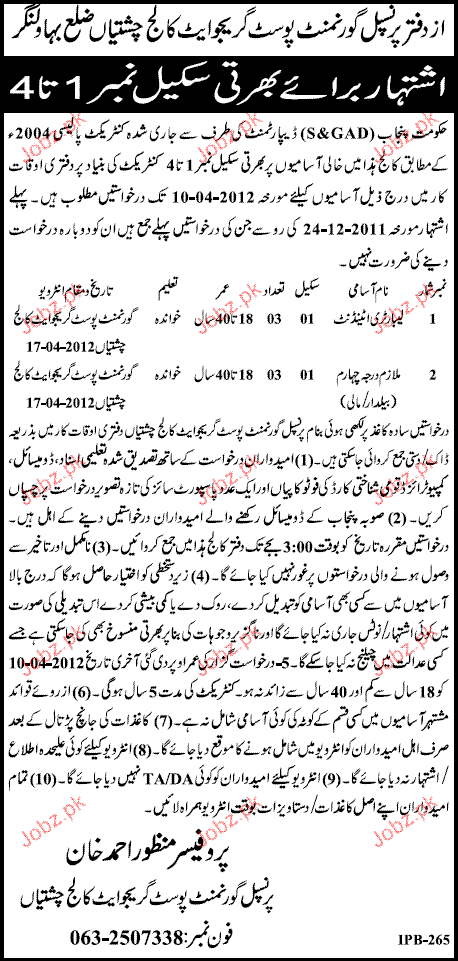 از دفتر پرنسپل گورنمنٹ پوسٹ گریجوایٹ کالج چشتیاں ضلع بہاولنگر
اشتہار برائے بھرتی سکیل نمبر 1 تا 4
حکومت پنجاب (S&GAD) ڈیپارٹمنٹ کی طرف سے جاری شدہ کنٹریکٹ پالیسی 2004ء
کے مطابق کالج ہذا میں خالی آسامیوں پر بھرتی سکیل نمبر 1 تا 4 کنٹریکٹ کی بنیاد پر دفتری اوقات
کار میں درج ذیل آسامیوں کیلئے مورخہ 10-04-2012 تک درخواستیں مطلوب ہیں۔ پہلے
اشتہار مورخہ 24-12-2011 کی رو سے جن کی درخواستیں پہلے جمع ہیں ان کو دوبارہ درخواست
دینے کی ضرورت نہیں۔
نمبر شمار نام آسامی سکیل تعداد عمر تعلیم تاریخ و مقام انٹرویو
1 لیبارٹری اٹینڈنٹ 01 03 18 تا 40 سال خواندہ گورنمنٹ پوسٹ گریجوایٹ کالج
چشتیاں 17-04-2012
2 ملازم درجہ چہارم 01 03 18 تا 40 سال خواندہ گورنمنٹ پوسٹ گریجوایٹ کالج
(بیلدار/مالی) چشتیاں 17-04-2012
درخواستیں سادہ کاغذ پر لکھی ہوئی بنام پرنسپل گورنمنٹ پوسٹ گریجوایٹ کالج چشتیاں دفتری اوقات کار میں بذریعہ
ڈاک/دستی جمع کروائی جاسکتی ہیں۔ (1) امیدواران درخواست کے ساتھ تصدیق شدہ تعلیمی اسناد، ڈومیسائل،
کمپیوٹرائزڈ قومی شناختی کارڈ کی فوٹو کاپیاں اور ایک عدد پاسپورٹ سائز کی تازہ تصویر درخواست پر چسپاں
کریں۔ (2) صوبہ پنجاب کے ڈومیسائل رکھنے والے امیدواران درخواستیں دینے کے اہل ہیں۔
درخواستیں مقررہ تاریخ کو بوقت 3:00 بجے تک دفتر کالج ہذا میں جمع کروائیں۔ (3) نامکمل اور تاخیر سے
وصول ہونے والی درخواستوں پر غور نہیں کیا جائے گا۔ (4) زیر دستخطی کو اختیار حاصل ہوگا کہ درج بالا
آسامیوں میں سے کسی بھی آسامی کو تبدیل کر دے، روک دے یا کمی بیشی کر دے اس تبدیلی کی صورت
میں کوئی اشتہار/نوٹس جاری نہ کیا جائے گا اور ناگزیر وجوہات کی بنا پر بھرتی منسوخ بھی کی جاسکتی ہے جسے
کسی عدالت میں چیلنج نہ کیا جاسکے گا۔ 5- درخواست گزار کی عمر اوپر دی گئی آخری تاریخ 10-04-2012
کو 18 سال سے کم اور 40 سال سے زائد نہ ہو۔ کنٹریکٹ کی مدت 5 سال ہوگی۔ (6) از روئے قوائد
مشتہر آسامیوں میں کسی قسم کے کوٹہ کی کوئی آسامی شامل نہ ہے۔ (7) کاغذات کی جانچ پڑتال کے بعد
صرف اہل امیدواران کو انٹرویو میں شامل ہونے کا موقع دیا جائے گا۔ (8) انٹرویو کیلئے کوئی علیحدہ اطلاع
/اشتہار نہ دیا جائے گا۔ (9) انٹرویو کیلئے امیدواران کو کوئی TA/DA نہیں دیا جائے گا۔ (10) تمام
امیدواران اپنے اصل کاغذات/دستاویزات بوقت انٹرویو ہمراہ لائیں۔
پروفیسر منظور احمد خان
پرنسپل گورنمنٹ پوسٹ گریجوایٹ کالج چشتیاں
فون نمبر: 063-2507338
IPB-265
Jobz.pk